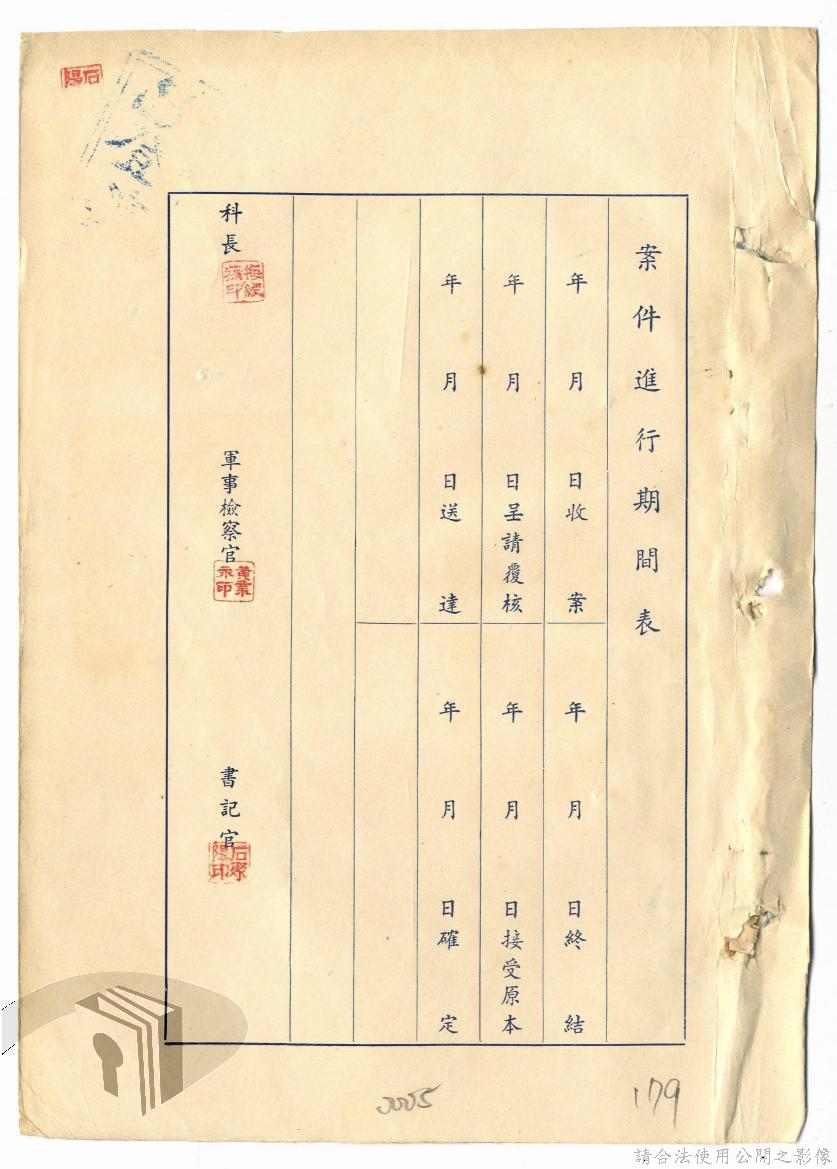 案件進行期間表
年 月 日收案
年 月 日終結
年 月 日呈請覆核
年 月 日接受原本
年 月 日送達
年 月 日確定
科長
軍事檢察官
黃業永印
書記官
179
請合法使用公開之影像